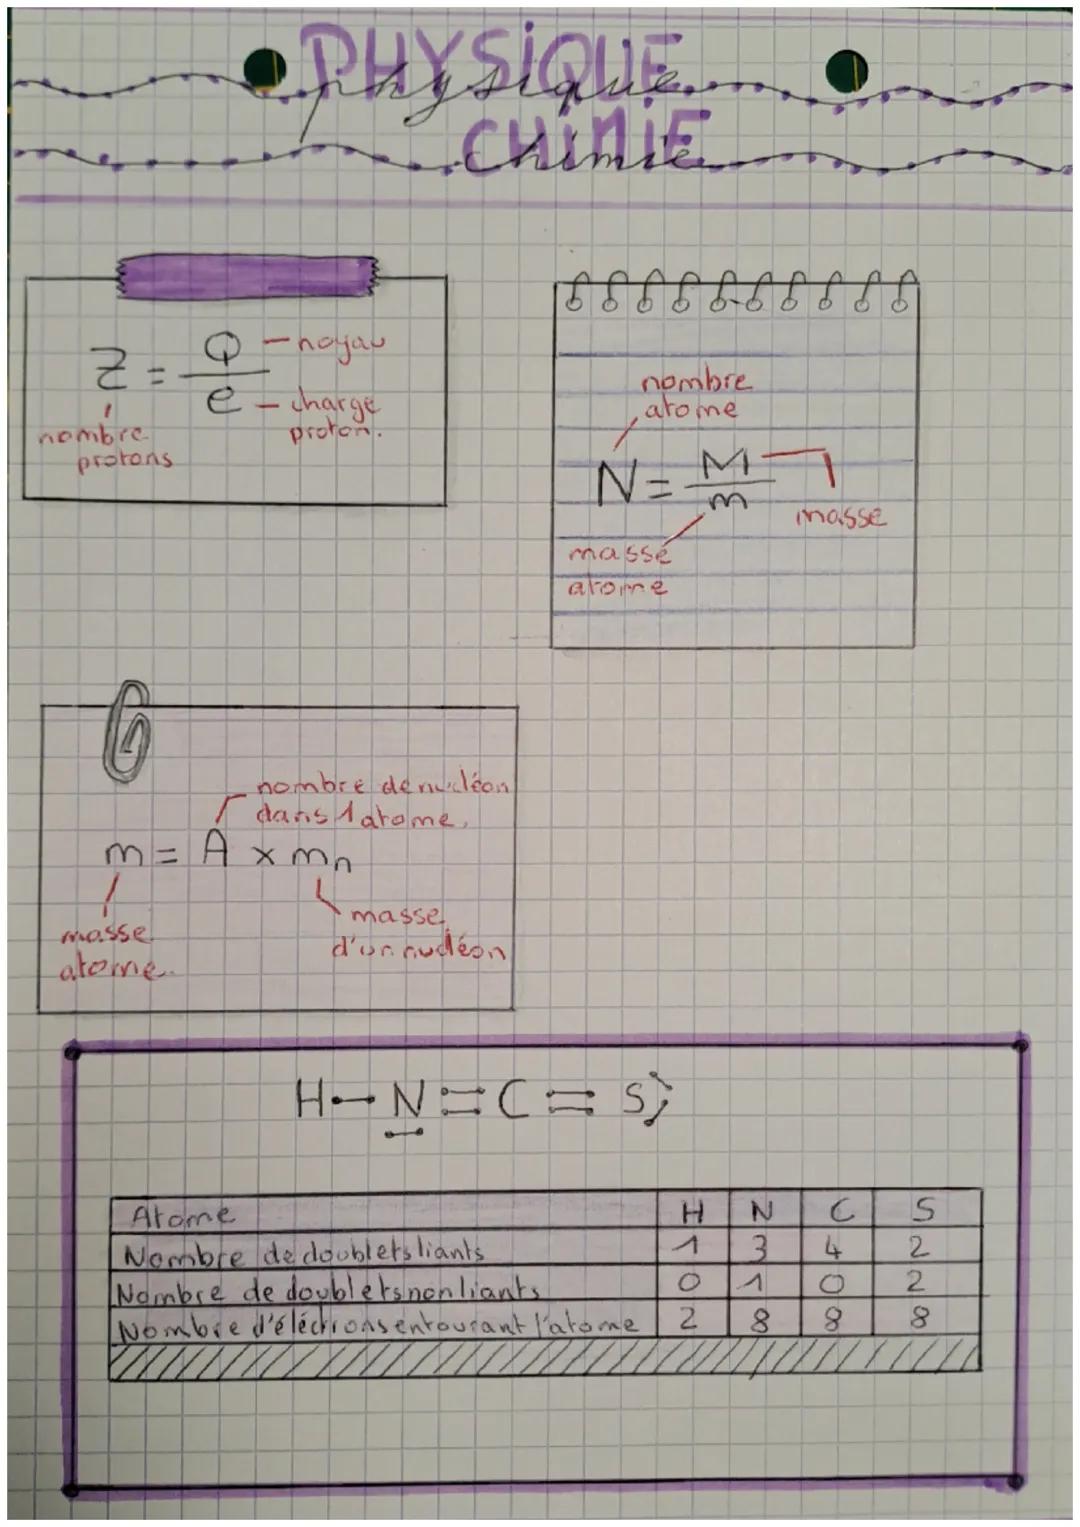 PHYSIQUE
physique
CHIMIE
chimie
Z = Q / e
noyau
charge
proton.
nombre
protons
nombre
atome
N = M / m
masse
masse
atome
nombre de nucléon
dans 1 atome.
m = A × mn
masse
atome.
masse
d'un nucléon
H - N = C = S
Atome H N C S
Nombre de doublets liants 1 3 4 2
Nombre de doublets non liants 0 1 0 2
Nombre d'éléctrons entourant l'atome 2 8 8 8